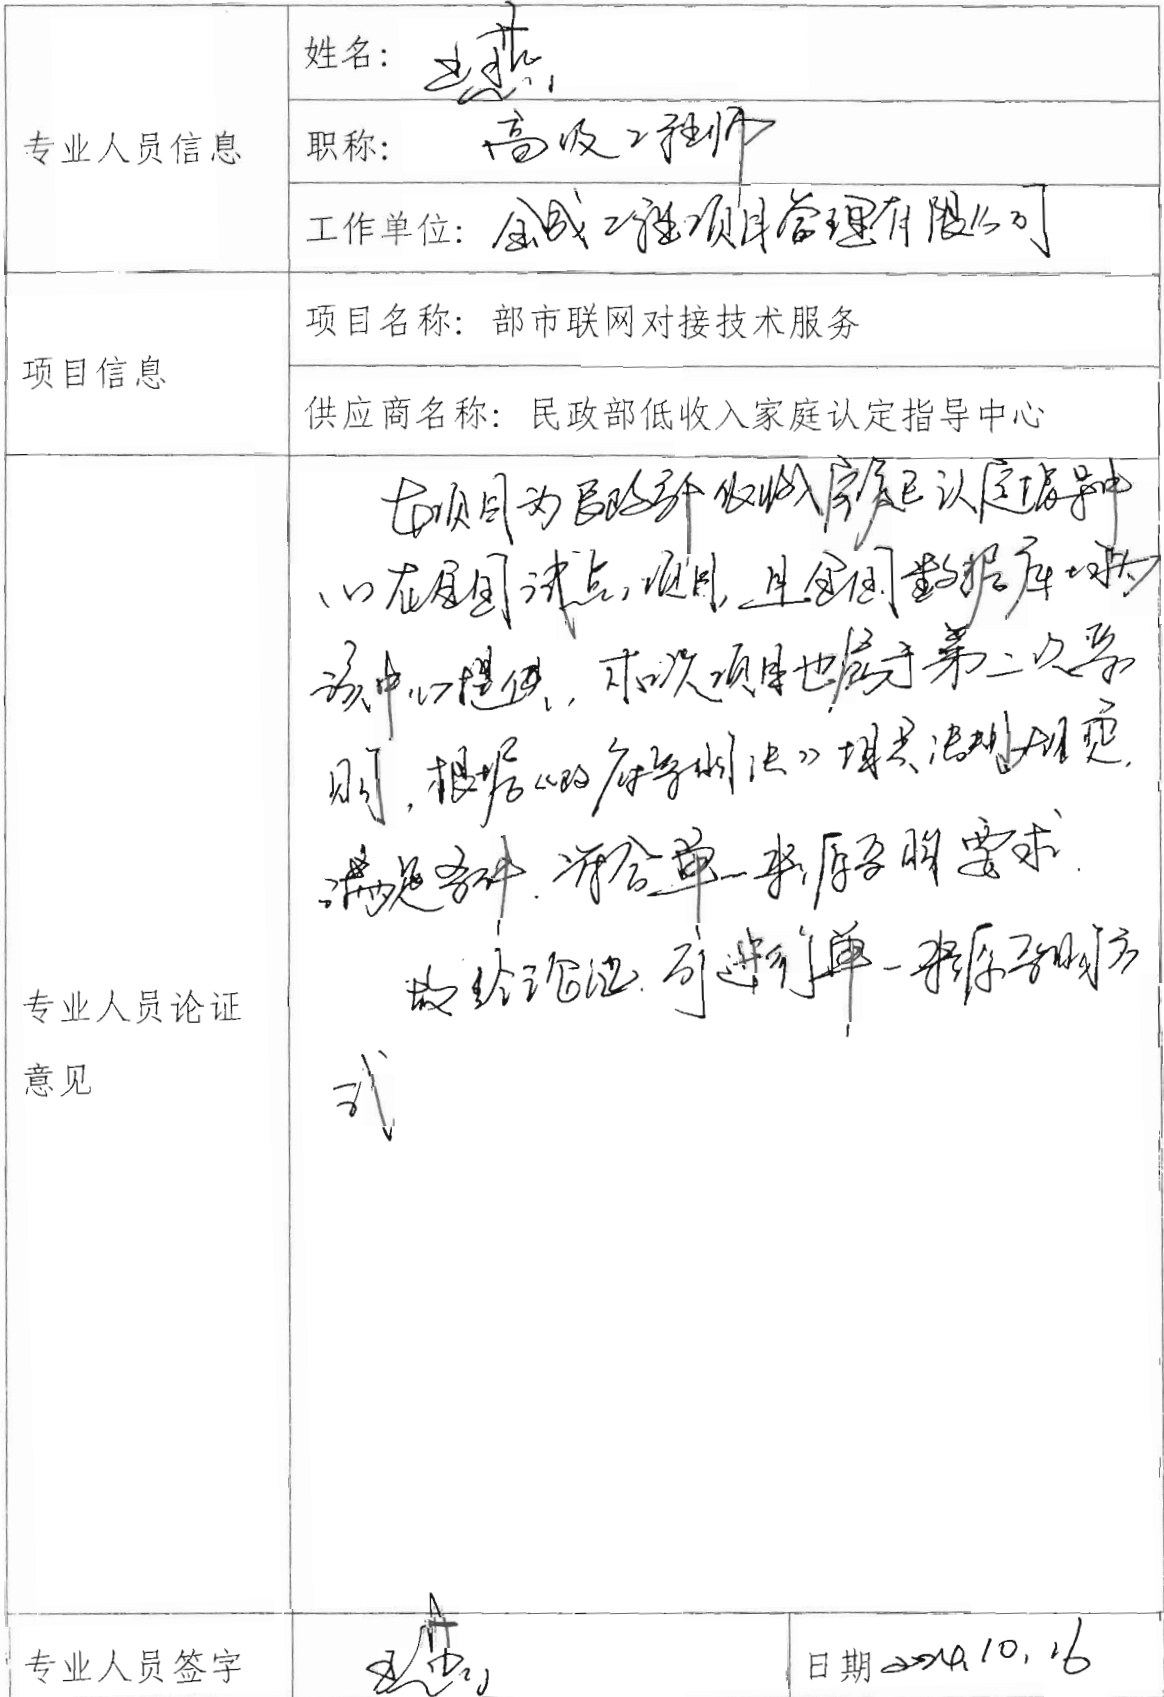 姓名：王燕
专业人员信息
职称：高级工程师
工作单位：金诚工程项目管理有限公司
项目名称：部市联网对接技术服务
项目信息
供应商名称：民政部低收入家庭认定指导中心
本项目为民政部低收入家庭认定指导中
心在全国试点项目，且全国数据库均为
该中心提供，本次项目也属于第二次采
购，根据《政府采购法》相关法规规定，
满足条件，符合单一来源采购要求.
故经论证，可进行单一来源采购方
式
专业人员论证
意见
专业人员签字 王燕
日期 2024.10.16